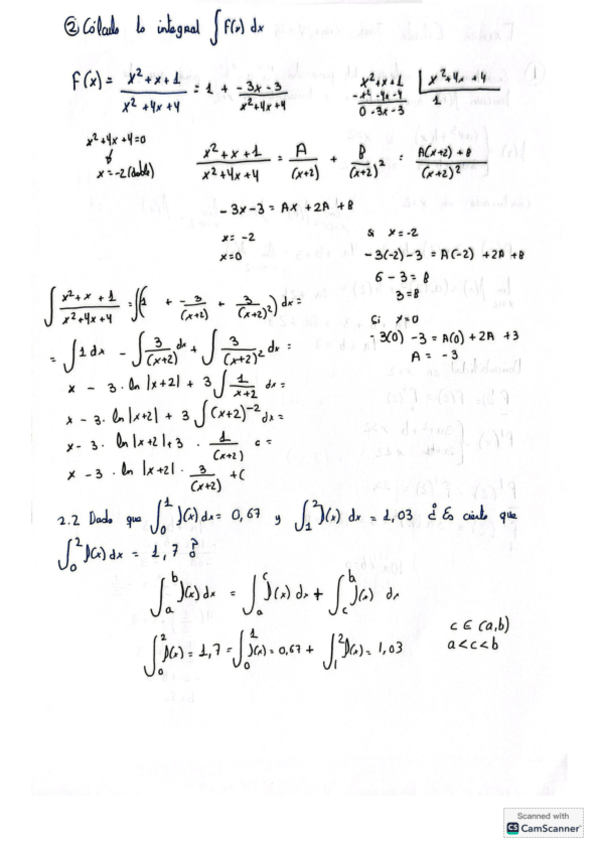 ② Cálculo la integral ∫ F(x) dx
F(x) = (x² + x + 1)/(x² + 4x + 4) = 1 + (-3x - 3)/(x² + 4x + 4)
x² + x + 1 | x² + 4x + 4
-x² - 4x - 4 1
0 - 3x - 3
x² + 4x + 4 = 0
x = -2 (doble)
(x² + x + 1)/(x² + 4x + 4) = A/(x+2) + B/(x+2)² = (A(x+2) + B)/(x+2)²
-3x - 3 = Ax + 2A + B
x = -2
x = 0
Si x = -2
-3(-2) - 3 = A(-2) + 2A + B
6 - 3 = B
3 = B
Si x = 0
-3(0) - 3 = A(0) + 2A + 3
A = -3
∫ (x² + x + 1)/(x² + 4x + 4) = ∫(1 + -3/(x+2) + 3/(x+2)²) dx =
= ∫ 1 dx - ∫ 3/(x+2) dx + ∫ 3/(x+2)² dx =
x - 3 · ln |x+2| + 3 ∫ 1/(x+2) dx =
x - 3 · ln |x+2| + 3 ∫ (x+2)⁻² dx =
x - 3 · ln |x+2| + 3 · 1/(x+2) c =
x - 3 · ln |x+2| · 3/(x+2) + C
2.2 Dado que ∫₀¹ f(x) dx = 0,67 y ∫₁² f(x) dx = 1,03 ¿Es cierto que
∫₀² f(x) dx = 1,7?
∫ₐᵇ f(x) dx = ∫ₐᶜ f(x) dx + ∫꜀ᵇ f(x) dx
c ∈ (a,b)
a < c < b
∫₀² f(x) = 1,7 = ∫₀¹ f(x) = 0,67 + ∫₁² f(x) = 1,03
Scanned with
CS CamScanner